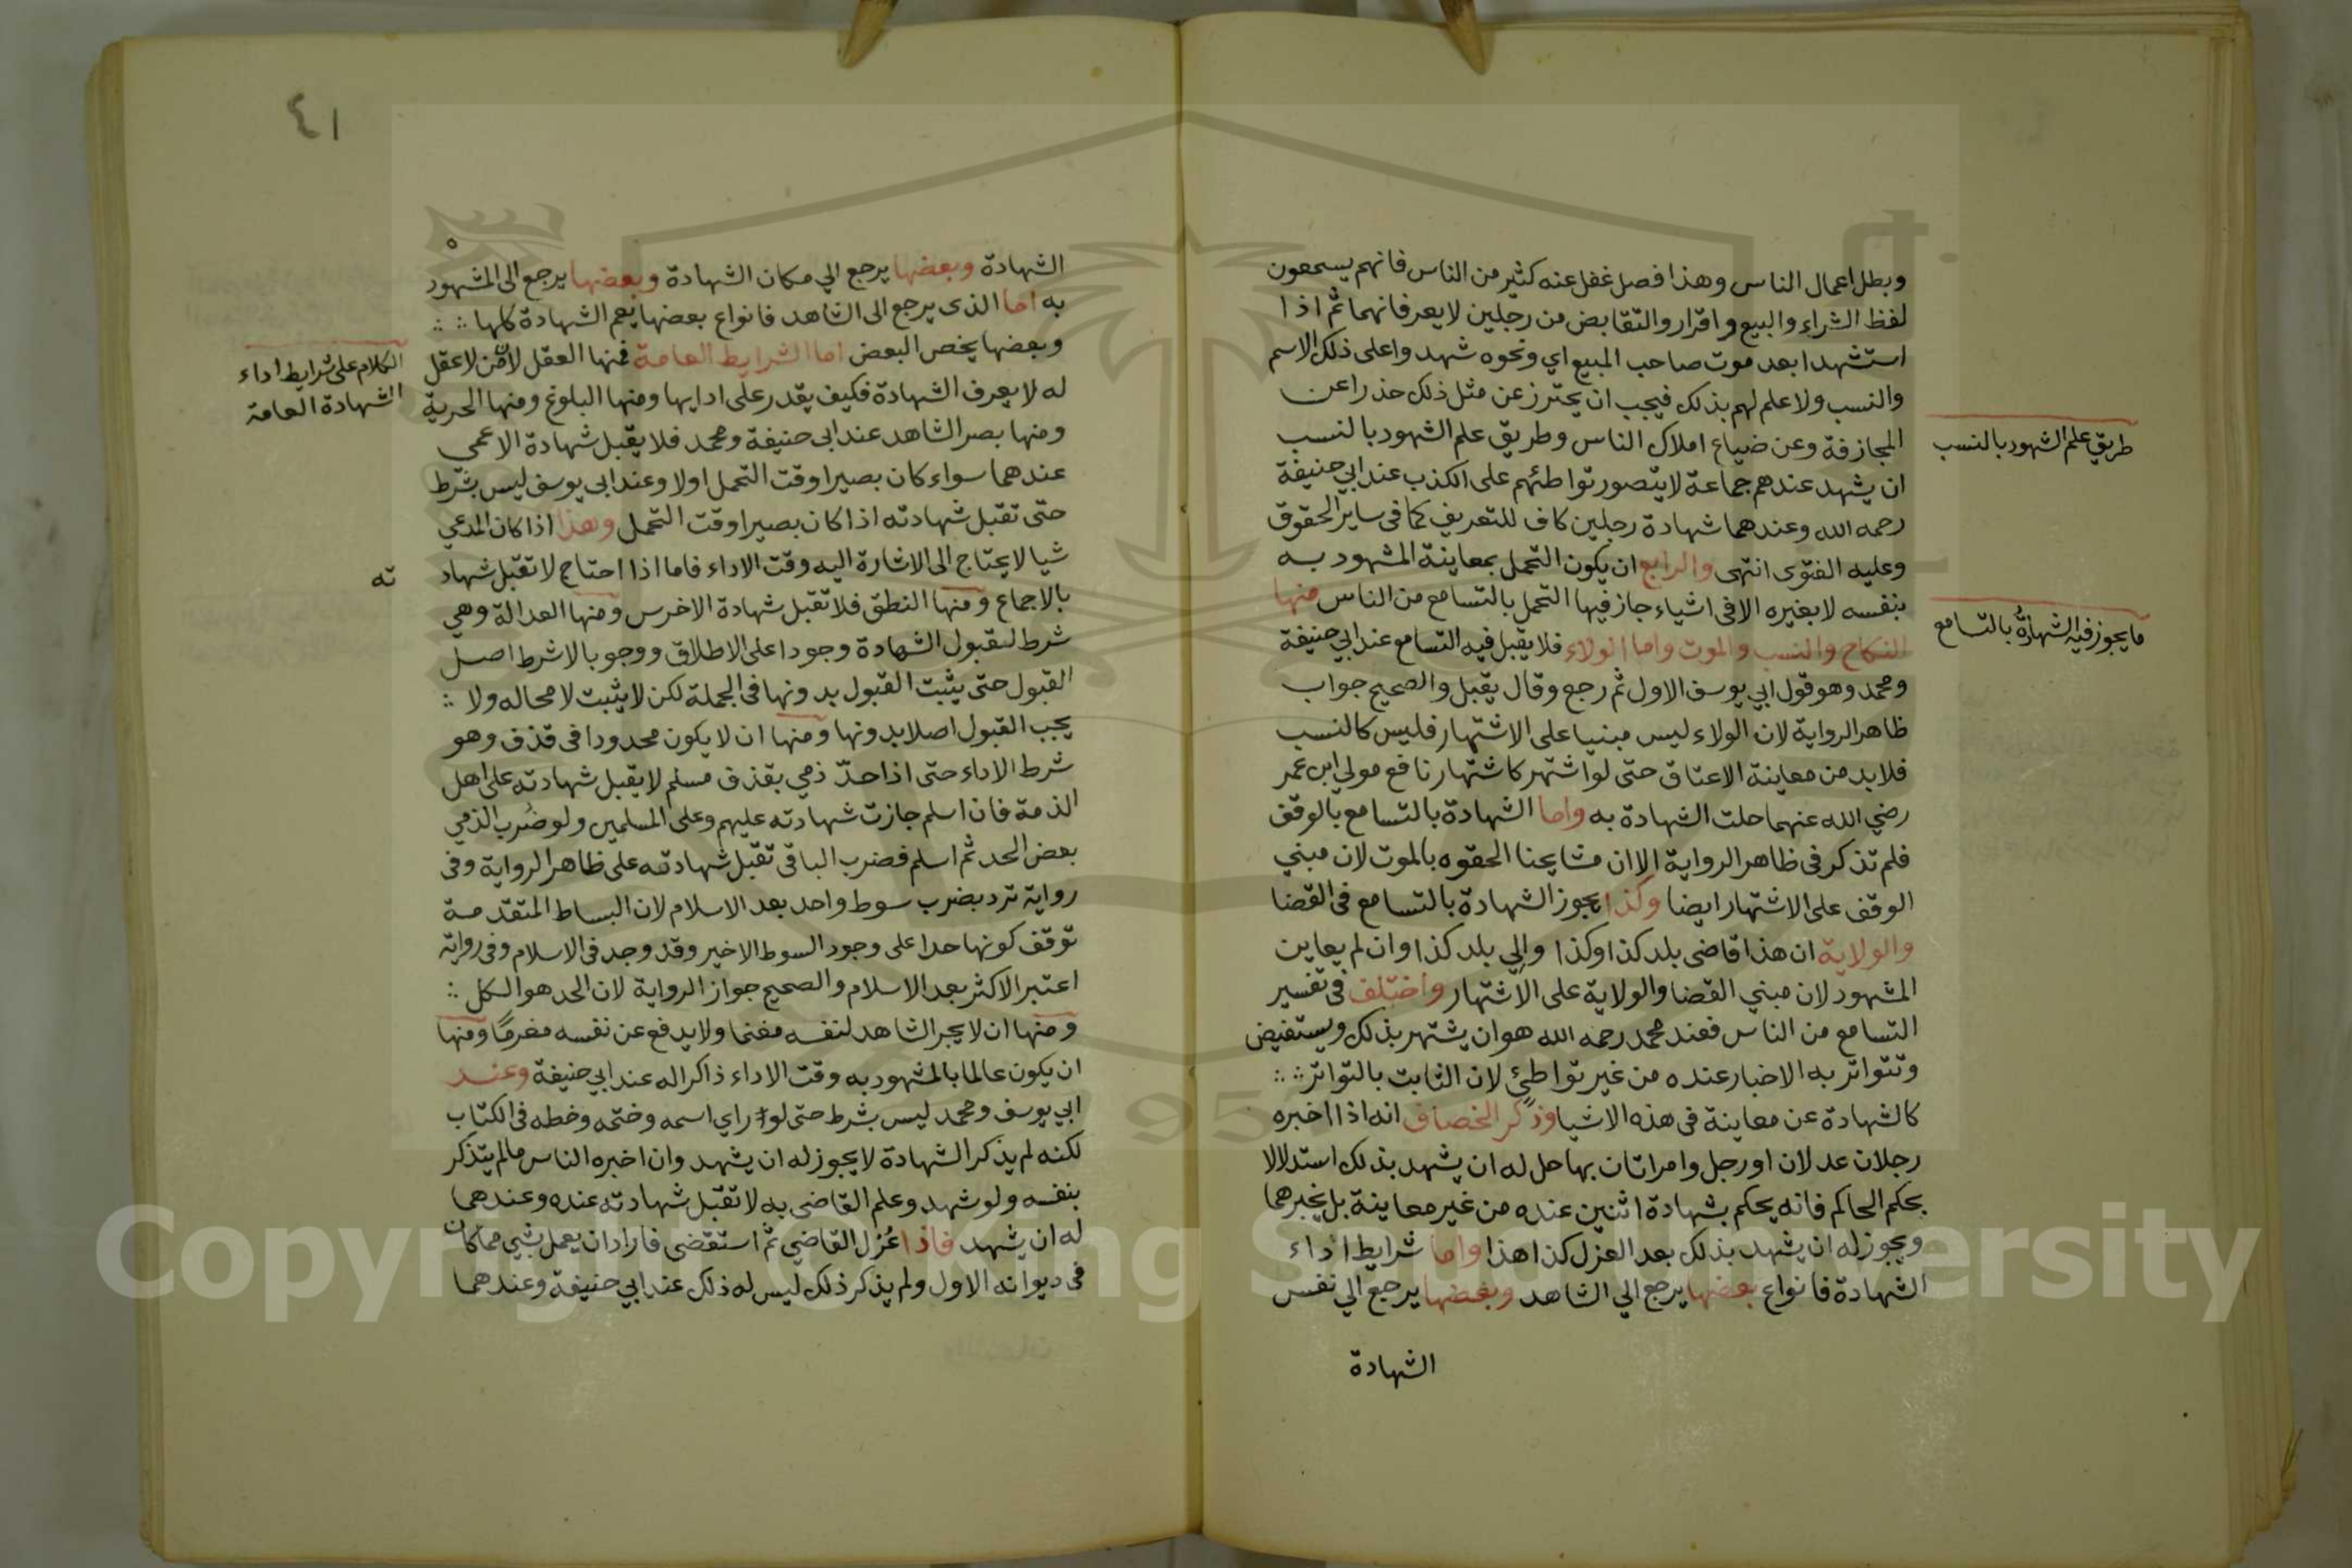 وبطل اعمال الناس وهذا فصل غفل عنه كثير من الناس فانهم يسمعون
لفظ الشراء والبيع واقرار والتقابض من رجلين لا يعرفانهما ثم اذا
استشهدا بعد موت صاحب المبيع اي ونحوه شهدوا على ذلك الاسم
والنسب ولا علم لهم بذلك فيجب ان يحترز عن مثل ذلك حذرا عن
المجازفة وعن ضياع املاك الناس وطريق علم الشهود بالنسب
طريق علم الشهود بالنسب
ان يشهد عندهم جماعة لا يتصور تواطئهم على الكذب عند ابي حنيفة
رحمه الله وعندهما شهادة رجلين كاف للتعريف كما في ساير الحقوق
وعليه الفتوى انتهى والرابع ان يكون التحمل بمعاينة المشهود به
بنفسه لا بغيره الا في اشياء جاز فيها التحمل بالتسامع من الناس منها
ما يجوز فيه الشهادة بالتسامع
النكاح والنسب والموت واما الولاء فلا يقبل فيه التسامع عند ابي حنيفة
ومحمد وهو قول ابي يوسف الاول ثم رجع وقال يقبل والصحيح جواب
ظاهر الرواية لان الولاء ليس مبنيا على الاشتهار فليس كالنسب
فلا بد من معاينة الاعتاق حتى لو اشتهر كاشتهار نافع مولي ابن عمر
رضي الله عنهما حلت الشهادة به واما الشهادة بالتسامع بالوقف
فلم تذكر في ظاهر الرواية الا ان مشايخنا الحقوه بالموت لان مبني
الوقف على الاشتهار ايضا وكذا يجوز الشهادة بالتسامع في القضا
والولاية ان هذا قاضى بلد كذا وكذا والي بلد كذا وان لم يعاين
المشهود لان مبني القضا والولاية على الاشتهار واختلف في تفسير
التسامع من الناس فعند محمد رحمه الله هو ان يشتهر بذلك ويستفيض
وتتواتر به الاخبار عنده من غير تواطئ لان الثابت بالتواتر
كالشهادة عن معاينة في هذه الاشيا وذكر الخصاف انه اذا اخبره
رجلان عدلان او رجل وامراتان بها حل له ان يشهد بذلك استدلالا
بحكم الحاكم فانه يحكم بشهادة اثنين عنده من غير معاينة بل يخبرهما
ويجوز له ان يشهد بذلك بعد العزل كذا هذا واما شرايط اداء
الشهادة فانواع بعضها يرجع الي الشاهد وبعضها يرجع الي نفس
الشهادة
٤١
الشهادة وبعضها يرجع الي مكان الشهادة وبعضها يرجع الى المشهود
به اما الذى يرجع الى الشاهد فانواع بعضها يعم الشهادة كلها
وبعضها يخص البعض اما الشرايط العامة فمنها العقل لان من لا عقل
الكلام على شرايط اداء
الشهادة العامة
له لا يعرف الشهادة فكيف يقدر على ادايها ومنها البلوغ ومنها الحرية
ومنها بصر الشاهد عند ابي حنيفة ومحمد فلا يقبل شهادة الاعمى
عندهما سواء كان بصيرا وقت التحمل اولا وعند ابي يوسف ليس بشرط
حتى تقبل شهادته اذا كان بصيرا وقت التحمل وهذا اذا كان المدعي
شيا لا يحتاج الى الاشارة اليه وقت الاداء فاما اذا احتاج لا تقبل شهادته
بالاجماع ومنها النطق فلا تقبل شهادة الاخرس ومنها العدالة وهي
شرط لقبول الشهادة وجودا على الاطلاق ووجوبا لا شرط اصل
القبول حتى يثبت القبول بدونها في الجملة لكن لا يثبت لا محاله ولا
يجب القبول اصلا بدونها ومنها ان لا يكون محدودا في قذف وهو
شرط الاداء حتى اذا حدّ ذمي بقذف مسلم لا يقبل شهادته على اهل
الذمة فان اسلم جازت شهادته عليهم وعلى المسلمين ولو ضُرب الذمي
بعض الحد ثم اسلم فضرب الباقى تقبل شهادته على ظاهر الرواية وفى
رواية ترد بضرب سوط واحد بعد الاسلام لان البساط المتقدمة
توقف كونها حدا على وجود السوط الاخير وقد وجد في الاسلام وفي رواية
اعتبر الاكثر بعد الاسلام والصحيح جواز الرواية لان الحد هو الكل
ومنها ان لا يجر الشاهد لنفسه مغنما ولا يدفع عن نفسه مغرمًا ومنها
ان يكون عالما بالمشهود به وقت الاداء ذاكرا له عند ابي حنيفة وعند
ابي يوسف ومحمد ليس بشرط حتى لو راي اسمه وختمه وخطه في الكتاب
لكنه لم يذكر الشهادة لا يجوز له ان يشهد وان اخبره الناس ما لم يتذكر
بنفسه ولو شهد وعلم القاضى به لا تقبل شهادته عنده وعندهما
له ان يشهد فاذا عُزل القاضي ثم استقضى فاراد ان يعمل بشي مما كان
فى ديوانه الاول ولم يذكر ذلك ليس له ذلك عند ابي حنيفة وعندهما
Copyright © King Saud University